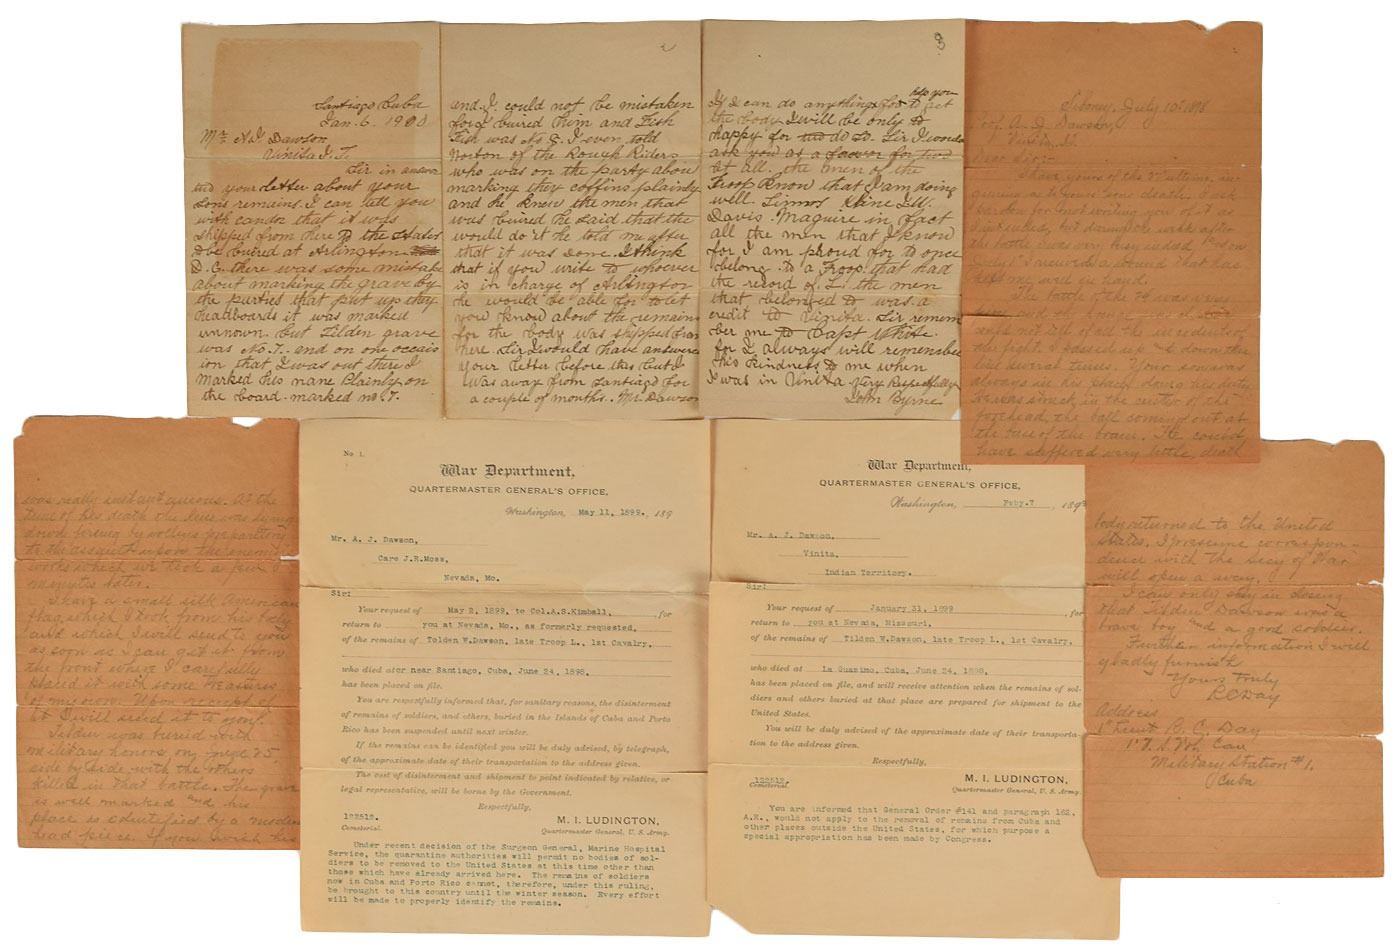 Santiago Cuba
Jan. 6. 1900
Mr A.J. Dawson
Vinita I. T.
Sir in answer
to your letter about your
sons remains. I can tell you
with candor that it was
shipped from here to the States
to be buried at Arlington
D.C. there was some mistake
about marking the grave by
the parties that put up they
headboards it was marked
unnown. but Tilden grave
was No. 7. and on one occais
ion that I was out there I
marked his name plainly on
the board. marked no. 7.
2
and. I. could not be mistaken
for I buired him and Fish
Fish was No 8. I even told
Norton of the Rough Riders
who was on the party abou
marking they coffins plainly
and he knew the men that
was buired he said that the
would do it he told me after
that it was done. I think
that if you write to whoever
is in charge of Arlington
he would be able for to let
you know about the remains
for the body was shipped from
here. Sir I would have answered
your letter before this but I
was away from Santiago for
a couple of months. Mr. Dawson
3
help you
If I can do anything for to get
the body I will be only to
happy for to do so. Sir I would
ask you as a favor for
at all. the men of the
Troop know that I am doing
well. Kline Ill.
Davis. Maguire in fact
all the men that I know
for I am proud for to once
belong to a Troop that had
the record of L. the men
that belonged to was a
credit to Vinita. Sir remem
ber me to Capt White
for I always will remember
his kindness to me when
I was in Vinita Very Respectfully
John Byrne
Siboney, July 10, 1898
Prof. A. J. Dawson,
Vinita,
Dear Sir:-
I have yours of the 2nd ulting, in-
quiring as to your sons death. I ask
pardon for not writing you of it as
I intended, but during the week after
the battle I was very busy indeed & on
July 1st I received a wound that has
kept me well in hand.
The battle of the 24 was very
could not tell of all the incidents of
the fight. I passed up & down the
line several times. Your son was
always in his place doing his duty.
He was struck in the center of the
forehead, the ball coming out at
the base of the brain. He could
have suffered very little, death
was really instantaneous. At the
time of his death the line was lying
down firing by volleys preparing
to the assault upon the enemy's
works which we took a few
minutes later.
I have a small silk American
flag which I took from his body
and which I will send to you
as soon as I can get it from
the front where I carefully
placed it with some treasures
of my own. Upon receipt of
it I will send it to you.
Tilden was buried with
military honors on June 25
side by side with the others
killed in that battle. The grave
is well marked and his
place is identified by a wooden
head piece. If you wish his
body returned to the United
States, I presume correspon-
dence with the Secy of War
will open a way.
I can only say in closing
that Tilden Dawson was a
brave boy and a good soldier.
Further information I will
gladly furnish
Yours truly
R C Day
Address
1st Lieut R. C. Day
1st U.S. Vol Cav
Military Station #1.
Cuba
No 1.
War Department,
QUARTERMASTER GENERAL'S OFFICE,
Washington, May 11, 1899., 189
Mr. A. J. Dawson,
Care J.R.Moss,
Nevada, Mo.
Sir:
Your request of May 2, 1899, to Col.A.S.Kimball, for
return to you at Nevada, Mo., as formerly requested,
of the remains of Tolden W.Dawson, late Troop L., 1st Cavalry,
who died at or near Santiago, Cuba, June 24, 1898,
has been placed on file.
You are respectfully informed that, for sanitary reasons, the disinterment
of remains of soldiers, and others, buried in the Islands of Cuba and Porto
Rico has been suspended until next winter.
If the remains can be identified you will be duly advised, by telegraph,
of the approximate date of their transportation to the address given.
The cost of disinterment and shipment to point indicated by relative, or
legal representative, will be borne by the Government.
Respectfully,
M. I. LUDINGTON,
Quartermaster General, U. S. Army.
122512.
Cemeterial.
Under recent decision of the Surgeon General, Marine Hospital
Service, the quarantine authorities will permit no bodies of sol-
diers to be removed to the United States at this time other than
those which have already arrived here. The remains of soldiers
now in Cuba and Porto Rico cannot, therefore, under this ruling,
be brought to this country until the winter season. Every effort
will be made to properly identify the remains.
War Department,
QUARTERMASTER GENERAL'S OFFICE,
Washington, Feby.7, 1899
Mr. A. J. Dawson,
Vinita,
Indian Territory.
Sir:
Your request of January 31, 1899, for
return to you at Nevada, Missouri,
of the remains of Tilden W.Dawson, late Troop L., 1st Cavalry,
who died at La Guasimo, Cuba, June 24, 1898,
has been placed on file, and will receive attention when the remains of sol-
diers and others buried at that place are prepared for shipment to the
United States.
You will be duly advised of the approximate date of their transporta-
tion to the address given.
Respectfully,
M. I. LUDINGTON,
Quartermaster General, U. S. Army.
122512.
Cemeterial.
You are informed that General Order #141 and paragraph 162,
A.R., would not apply to the removal of remains from Cuba and
other places outside the United States, for which purpose a
special appropriation has been made by Congress.